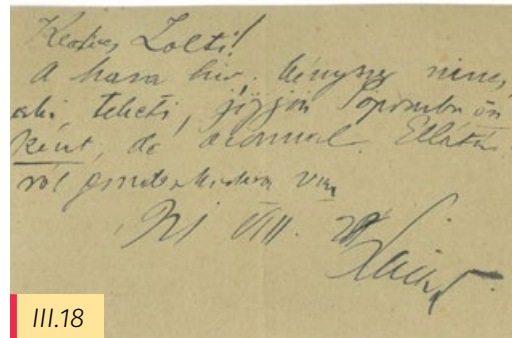 Kedves Zolti!
A haza hiv. Kényszer nincs,
aki teheti, jöjjön Sopronba ön
ként, de azonnal. Ellátás
ról gondoskodva van
VIII.
III.18